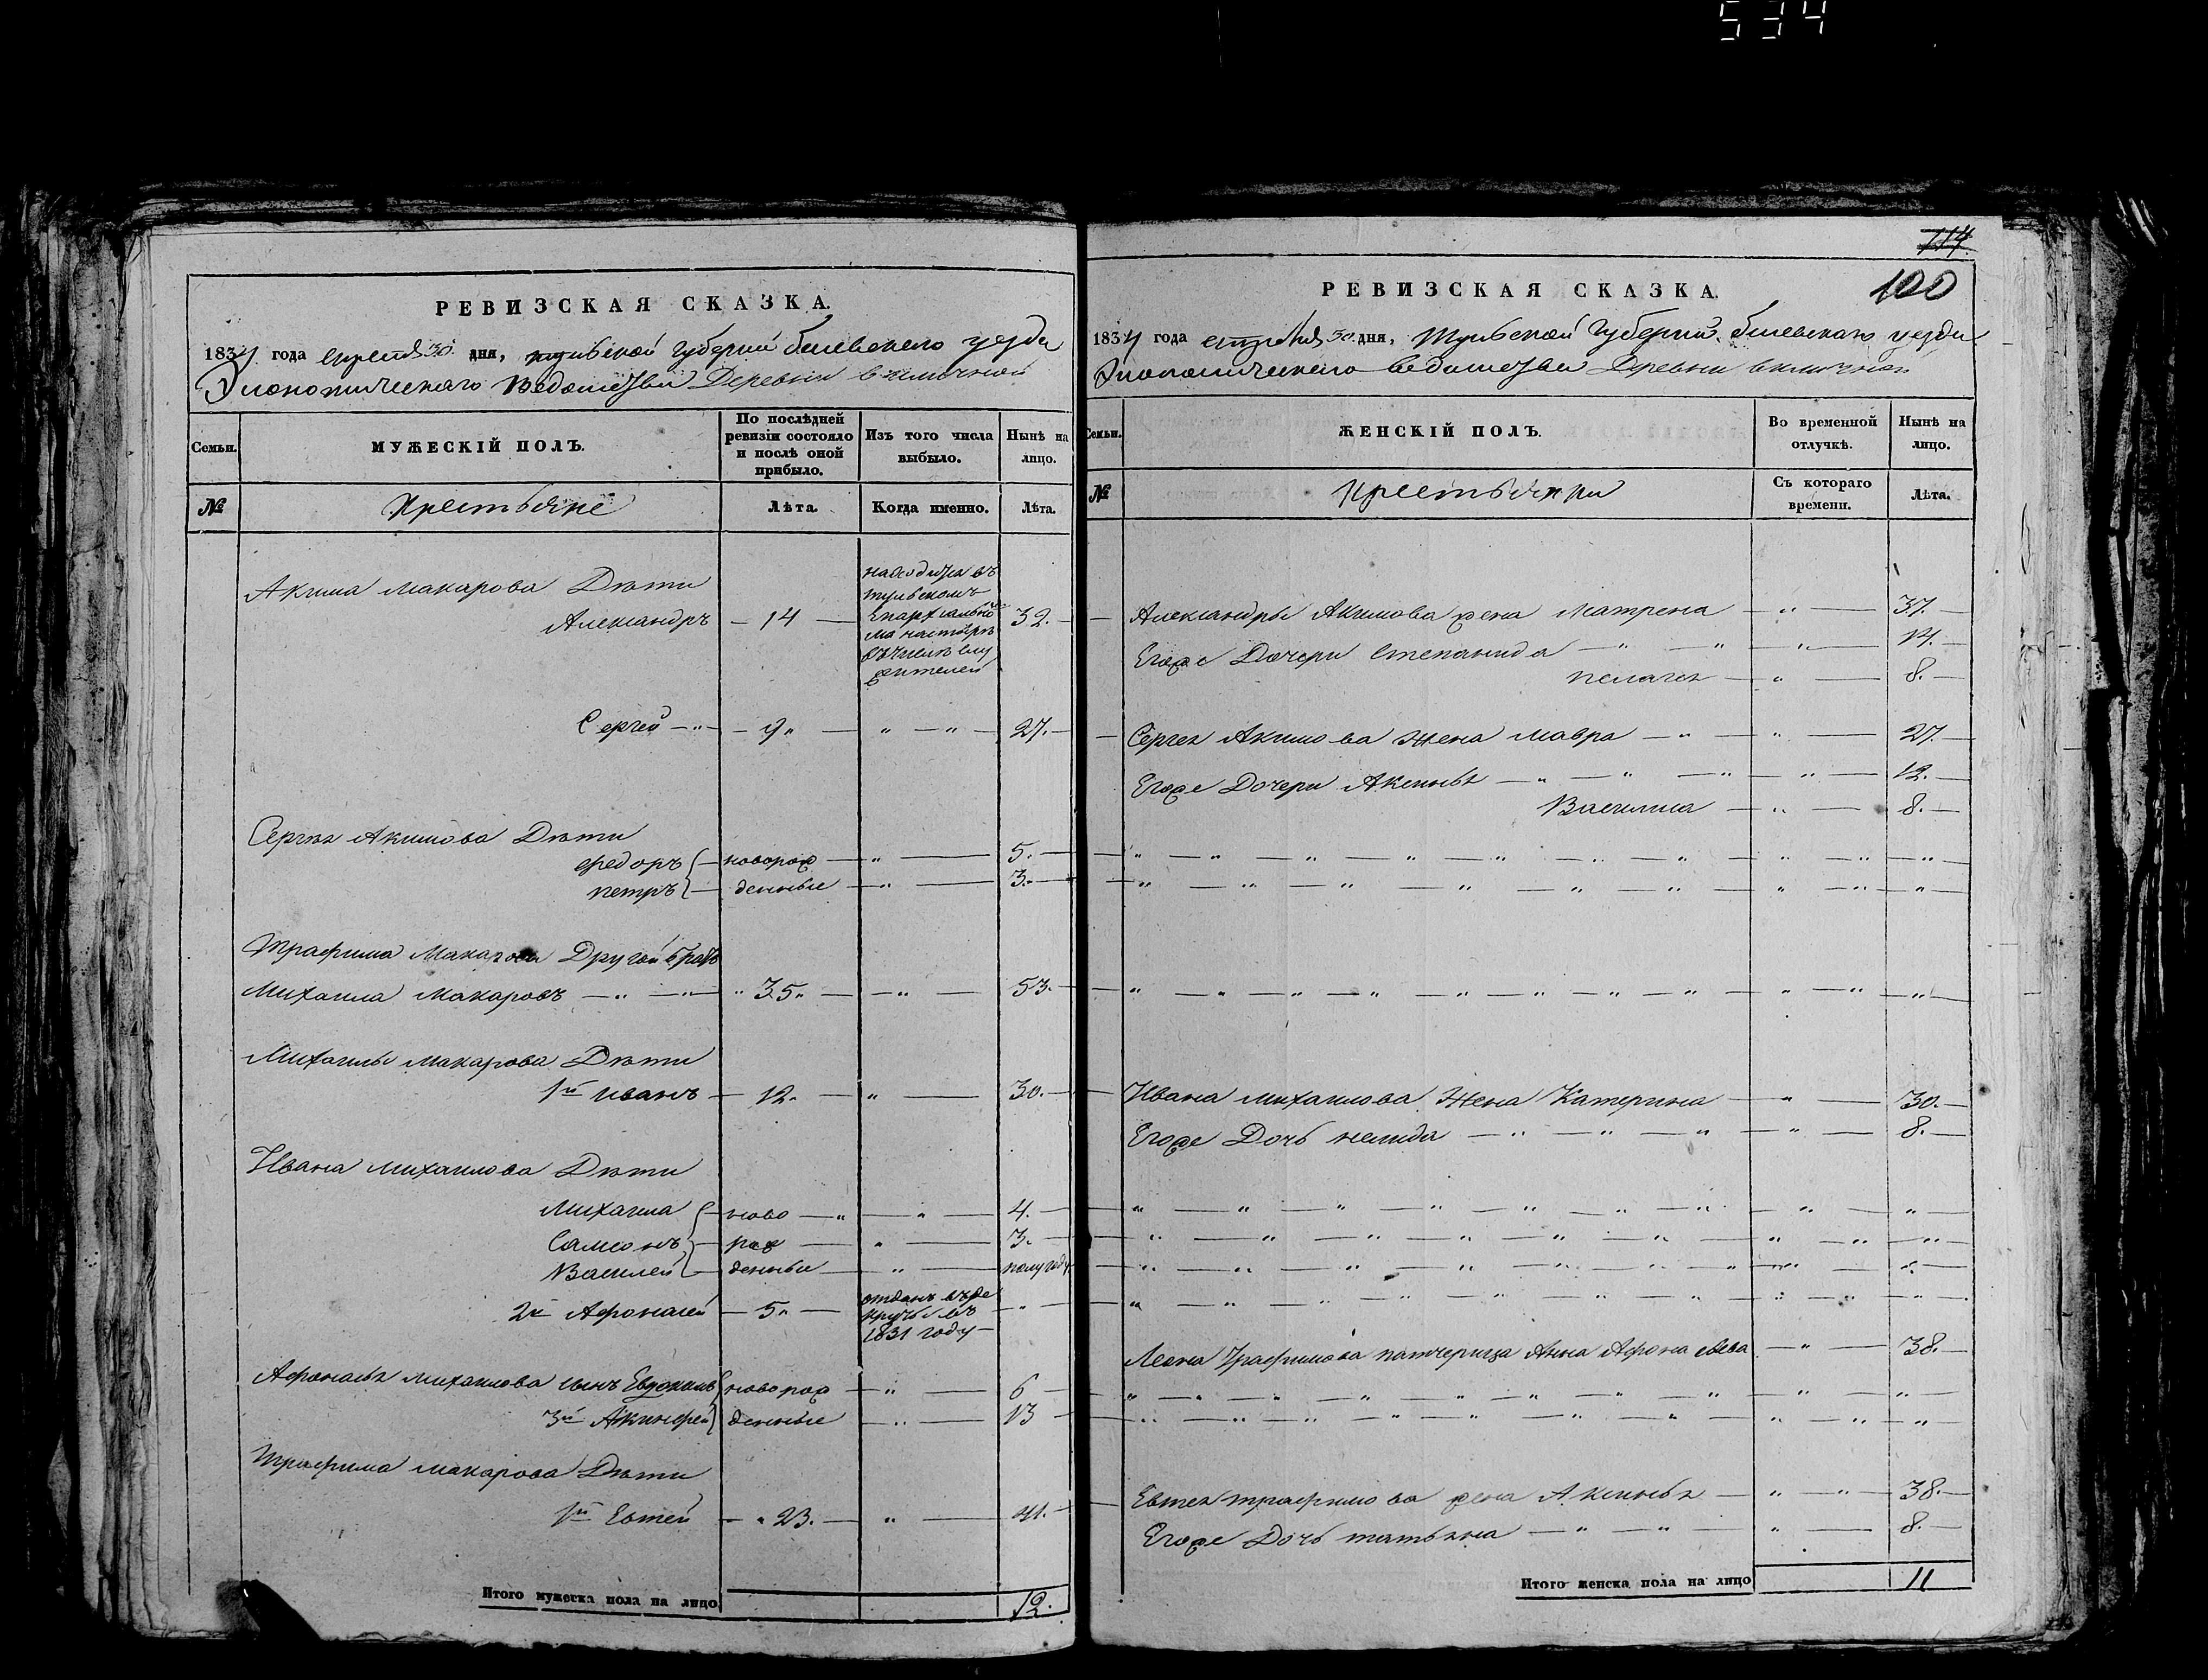 534
РЕВИЗСКАЯ СКАЗКА.
1834 года апреля 30 дня, тульской губернии белевского уезда
Экономического ведомства Деревни
Семьи.
МУЖЕСКІЙ ПОЛЪ.
По послѣдней ревизіи состояло и послѣ оной прибыло.
Изъ того числа выбыло.
Нынѣ на лицо.
№
крестьяне
Лѣта.
Когда именно.
Лѣта.
Акима Макарова Дѣти
Александръ — 14 — 32. —
находится въ
тульскомъ
Сергей — „ — 9 „ — „ — „ — 27. —
Сергея Акимова Дѣти
Федоръ — новорож — „ — 5. —
петръ — денные — „ — 3. —
Трафима Макарова Другой братъ
Михаила Макаровъ — „ — „ — „ 35 „ — „ — 53. —
Михаилы Макарова Дѣти
1й иванъ — 12. — „ — 30. —
Ивана михаилова Дѣти
Михаила — ново — „ — „ — 4. —
Самсонъ — рож — „ — 3. —
Василей — денные — „ — полугоду
2й Афонасей — 5 „ —
1831 году —
Афонасья михаилова сынъ Евдокимъ новорож — „ — 6 —
3й Акинфей денные — „ — 13 —
Трафима макарова Дѣти
1й Евтей — „ 23. — „ — 41. —
Итого мужеска пола на лицо
12.
114.
100
РЕВИЗСКАЯ СКАЗКА.
1834 года апреля 30 дня, Тульской Губернии белевскаго уезда
Экономическаго ведомства Деревни
Семьи.
ЖЕНСКІЙ ПОЛЪ.
Во временной отлучкѣ.
Нынѣ на лицо.
№
крестьянки
Съ котораго времени.
Лѣта.
Александры Акимова жена Матрена — „ — 37. —
Егоже Дочери степанида — „ — „ — „ — 14. —
пелагея — „ — 8. —
Сергея Акимова жена мавра — „ — „ — 27 —
Егоже Дочери Аксинья — „ — „ — „ — „ — 12. —
Василиса — „ — 8. —
Ивана михаилова Жена Катерина — „ — 30. —
Егоже Дочь — „ — „ — „ — „ — 8. —
Трафимова патчерица Анна Афонасьева — „ — 38. —
Евтея трафимова жена Аксинья — „ — „ — 38. —
Егоже Дочь татьяна — „ — „ — „ — 8. —
Итого женска пола на лицо
11